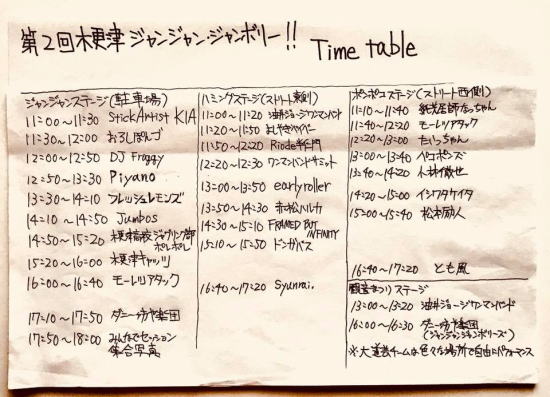 第2回木更津ジャンジャン・ジャンボリー!! Time table
ジャンジャンステージ(駐車場)
11:00~11:30 Stick Artist KIA
11:30~12:00 おろしぽんゴ
12:00~12:50 DJ Froggy
12:50~13:30 Piyano
13:30~14:10 フレッシュレモンズ
14:10~14:50 Jumbos
14:50~15:20 木更津高校ジャグリング部
ポレポレ
15:20~16:00 木更津キャッツ
16:00~16:40 モーレツアタック
17:10~17:50 ダニーゆや楽団
17:50~18:00 みんなでセッション
集合写真
ハミングステージ(ストリート東側)
11:00~11:20 油井ジョージワンマンバンド
11:20~11:50
11:50~12:20 Riode
12:20~12:30 ワンマンバンドサミット
13:00~13:50 earlyroller
13:50~14:30 赤松ハルカ
14:30~15:10 FRAMED BUT
INFINITY
15:10~15:50 ドンガバス
16:40~17:20 Syunrai.
ポンポコステージ(ストリート西側)
11:10~11:40 紙芝居師なっちゃん
11:40~12:20 モーレツアタック
12:20~13:00 たいっちゃん
13:00~13:40 ハコボンズ
13:40~14:20 小林徹也
14:20~15:00 イシワタケイタ
15:00~15:40 松本励人
16:40~17:20 とも風
観音まつりステージ
13:00~13:20 油井ジョージワンマンバンド
16:00~16:30 ダニーゆや楽団
(ジャンジャンジャンボリーズ)
※大道芸チームは色々な場所で自由にパフォーマンス